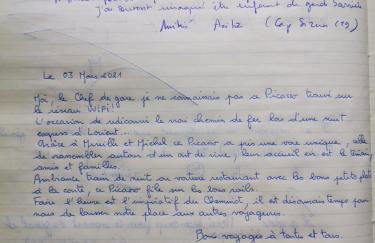 J'ai surtout
Amitié
Le 03 Mars 2021
Moi, le Chef de gare je ne connaissais pas ce Picasso trouvé sur
le réseau WIFI!
L'occasion de redécouvrir le vrai chemin de fer lors d'une nuit
express à Lorient...
Grâce à Mireille et Michel ce Picasso a pris une voie unique, celle
de rassembler autour d'un art de vivre, leur accueil en est le témoin,
amis et familles.
Ambiance train de nuit au voiture restaurant avec les bons petits plats
à la carte, ce Picasso file sur les bons rails.
Faire l'heure est l'impératif du Cheminot, il est désormais temps pour
nous de laisser notre place aux autres voyageurs.
Bons voyages à toutes et tous.